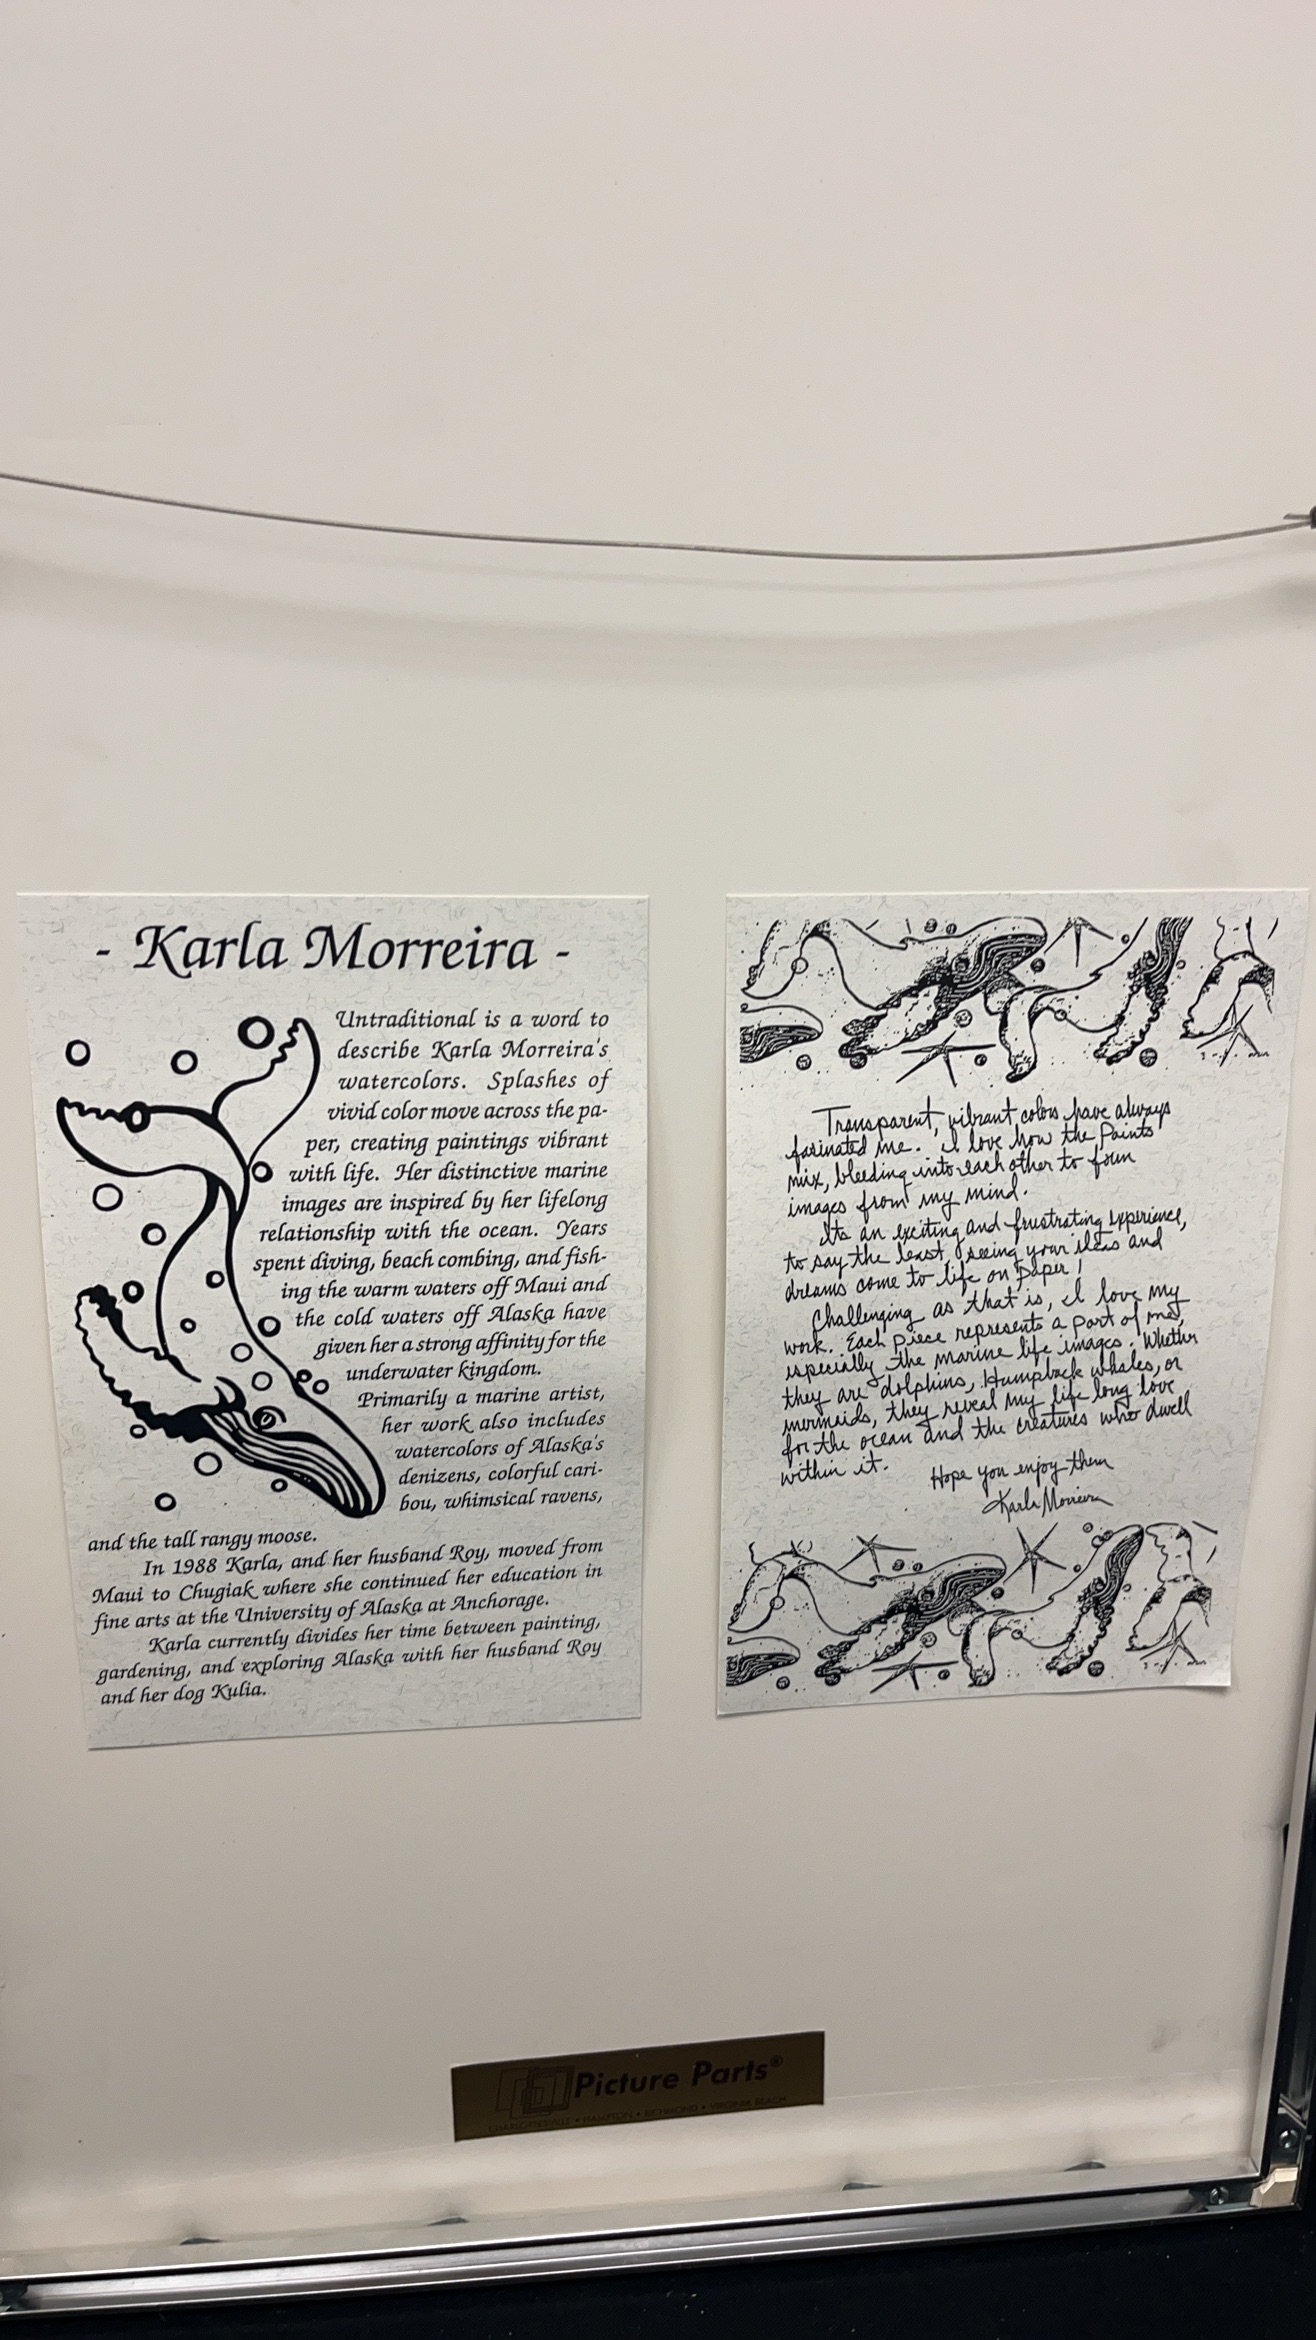 - Karla Morreira -
Untraditional is a word to
describe Karla Morreira's
watercolors. Splashes of
vivid color move across the pa-
per, creating paintings vibrant
with life. Her distinctive marine
images are inspired by her lifelong
relationship with the ocean. Years
spent diving, beach combing, and fish-
ing the warm waters off Maui and
the cold waters off Alaska have
given her a strong affinity for the
underwater kingdom.
Primarily a marine artist,
her work also includes
watercolors of Alaska's
denizens, colorful cari-
bou, whimsical ravens,
and the tall rangy moose.
In 1988 Karla, and her husband Roy, moved from
Maui to Chugiak where she continued her education in
fine arts at the University of Alaska at Anchorage.
Karla currently divides her time between painting,
gardening, and exploring Alaska with her husband Roy
and her dog Kulia.
Transparent, vibrant colors have always
facinated me. I love how the paints
mix, bleeding into each other to form
images from my mind.
Its an exciting and frustrating experience,
to say the least, seeing your ideas and
dreams come to life on paper!
Challenging as that is, I love my
work. Each piece represents a part of me,
especially the marine life images. Whether
they are dolphins, Humpback whales, or
mermaids, they reveal my life long love
for the ocean and the creatures who dwell
within it.
Hope you enjoy them
Karla Morreira
Picture Parts®
CHARLOTTESVILLE • HAMPTON • RICHMOND • VIRGINIA BEACH